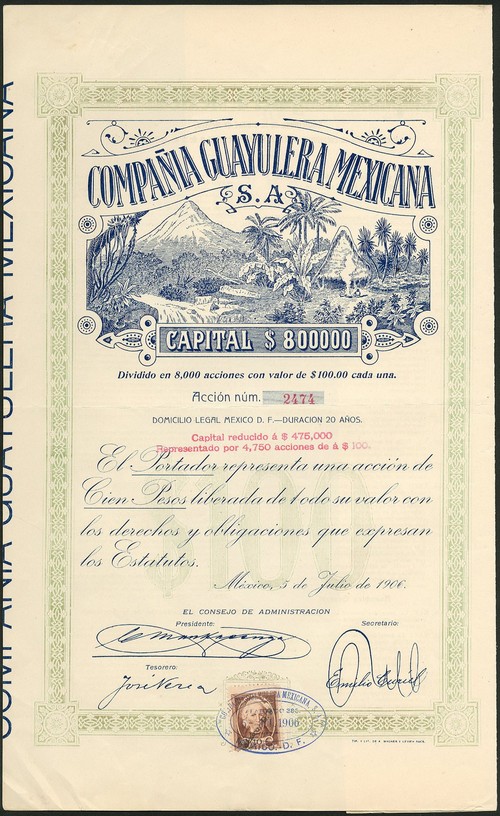 COMPAÑIA GUAYULERA MEXICANA
COMPAÑIA GUAYULERA MEXICANA
S.A.
CAPITAL $ 800000
Dividido en 8,000 acciones con valor de $100.00 cada una.
Acción núm. 2474
DOMICILIO LEGAL MEXICO D. F.—DURACION 20 AÑOS.
Capital reducido á $ 475,000
Representado por 4,750 acciones de á $ 100.
$100
El Portador representa una acción de
Cien Pesos liberada de todo su valor con
los derechos y obligaciones que expresan
los Estatutos.
México, 5 de Julio de 1906.
EL CONSEJO DE ADMINISTRACION
Presidente:
Secretario:
Tesorero:
MEXICANA, S.A.
1906
MEXICO, D. F.